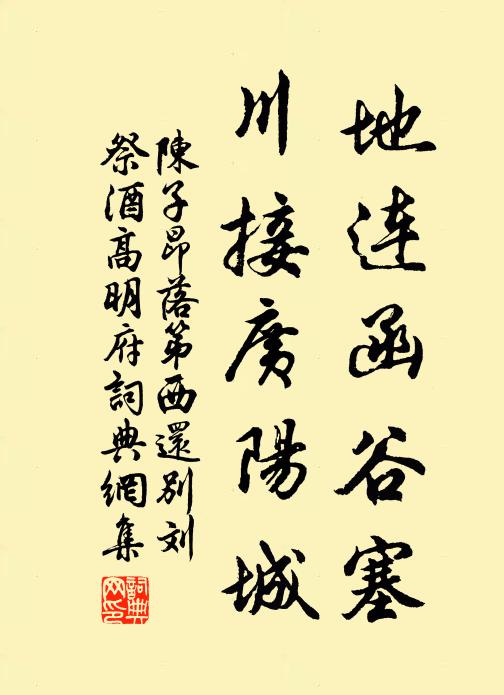 地连函谷塞
川接廣陽城
陳子昂落第西還別刘
祭酒高明府詞典網集